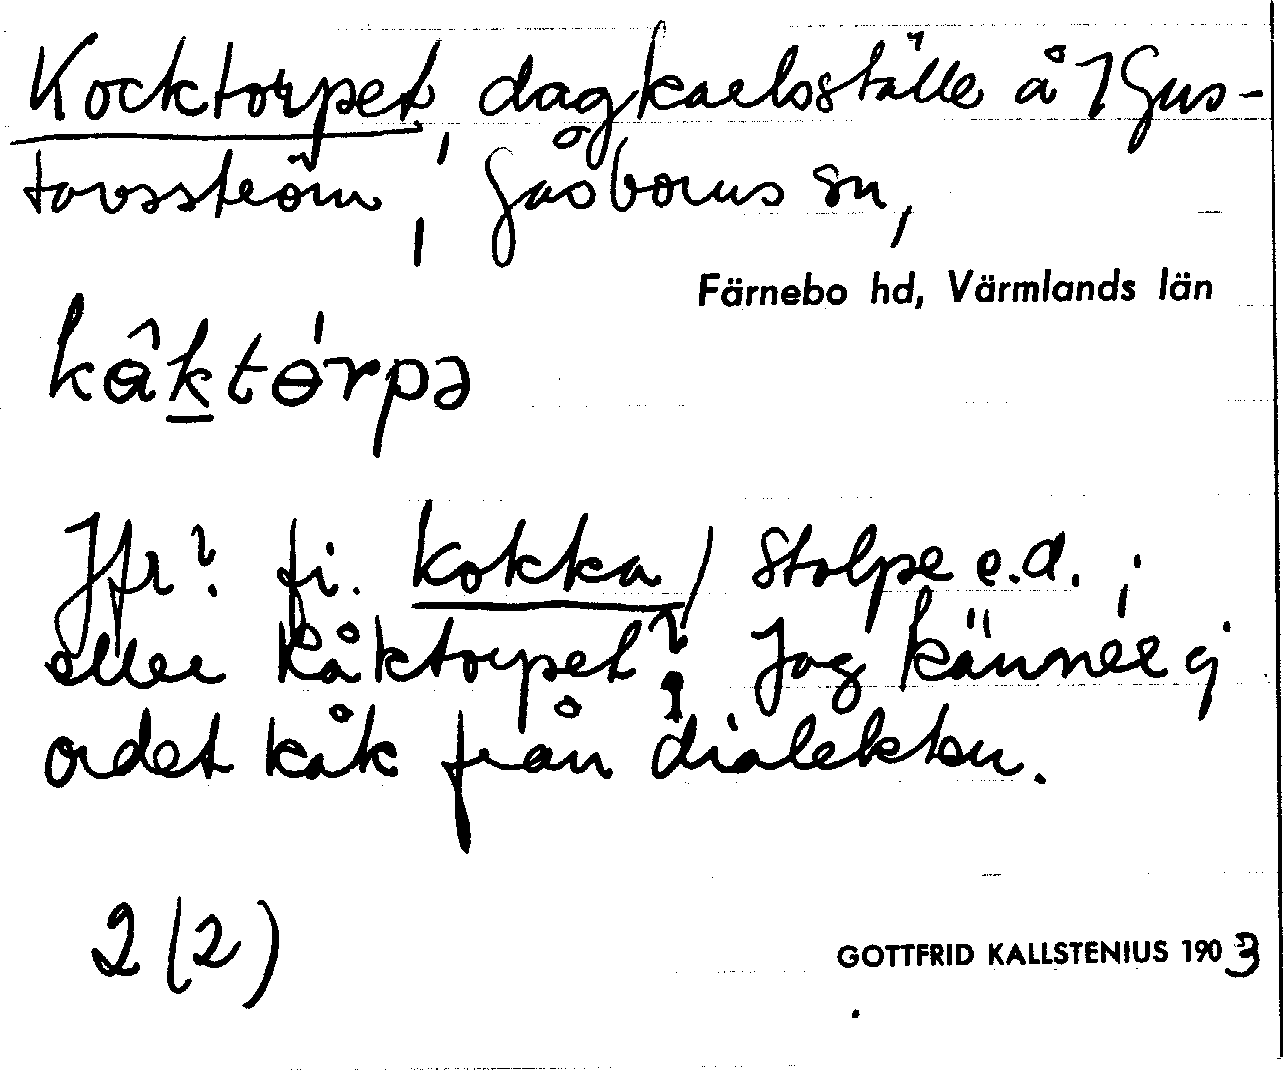 Kocktorpet, dagkarlsställe å 1 Gus-
tavsström, Gåsborns sn,
Färnebo hd, Värmlands län
kɵ̂ktɵ́rpə
Jfr? fi. kokka, stolpe e.d.;
eller Kåktorpet? Jag känner ej
ordet kåk från dialekten.
2 (2)
GOTTFRID KALLSTENIUS 1903